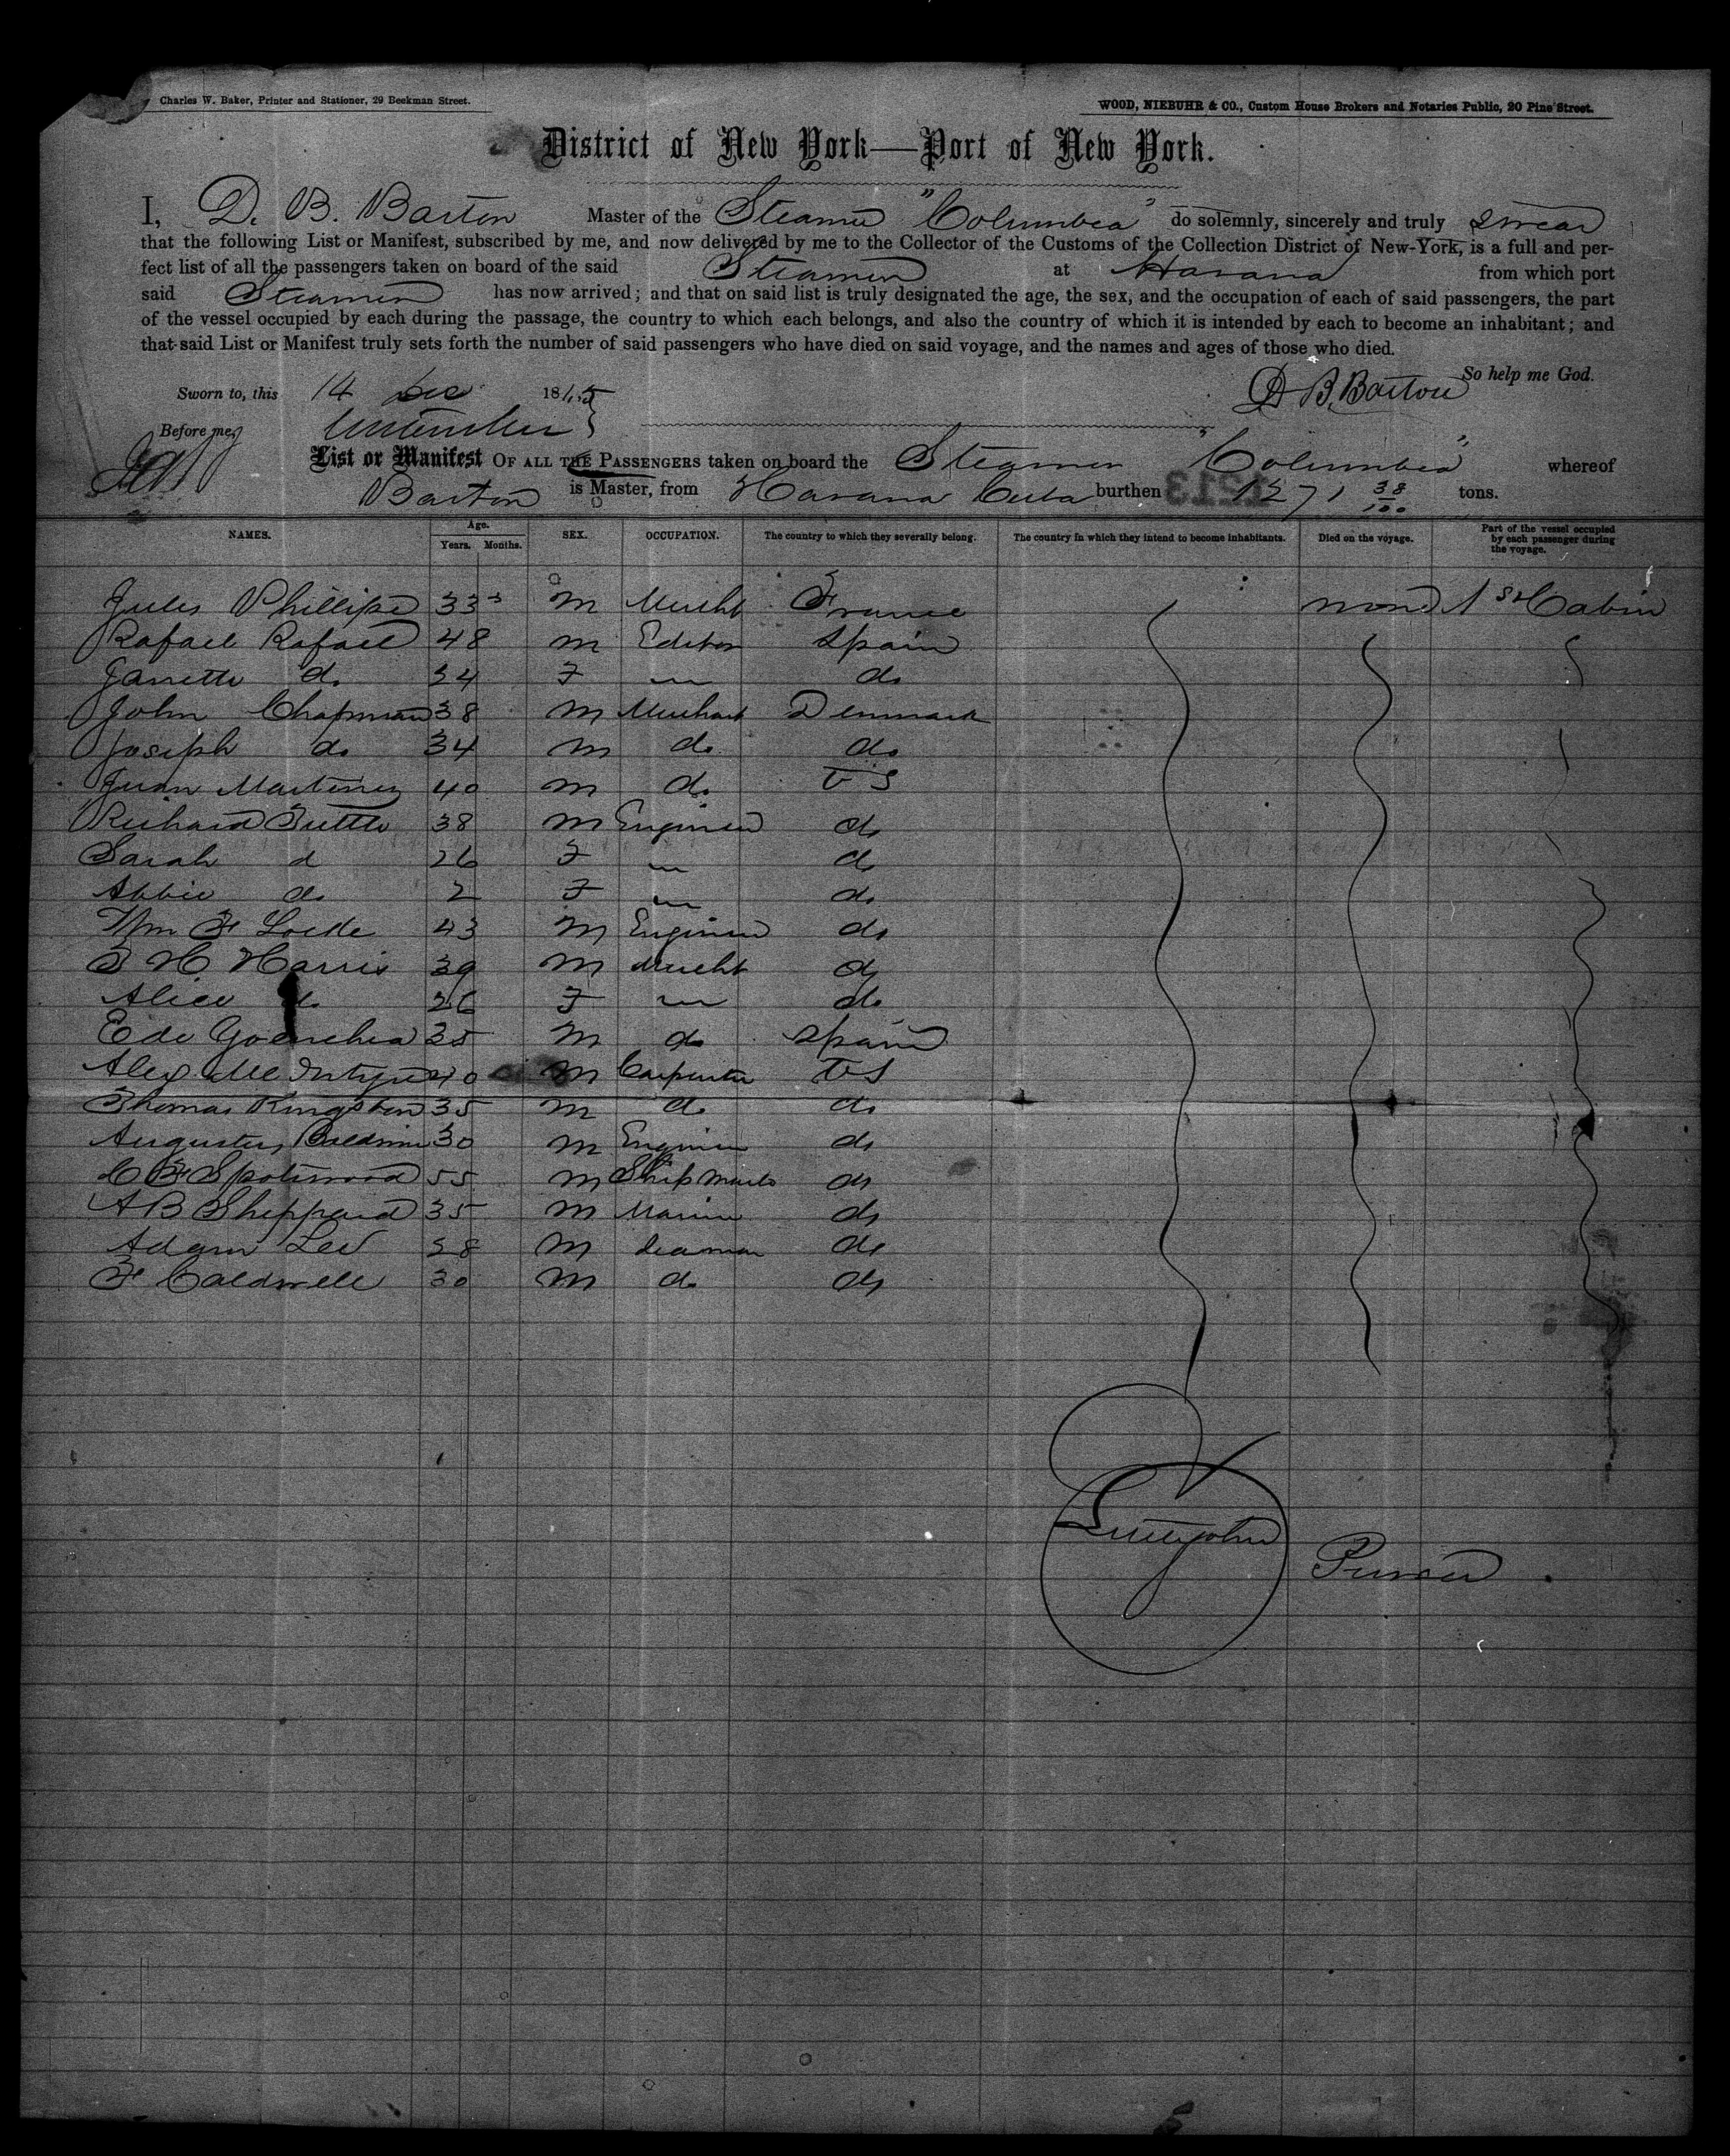 Charles W. Baker, Printer and Stationer, 29 Beekman Street.
WOOD, NIEBUHR & CO., Custom House Brokers and Notaries Public, 20 Pine Street.
District of New York—Port of New York.
I, D. B. Barton Master of the Steamer "Columbia" do solemnly, sincerely and truly swear
that the following List or Manifest, subscribed by me, and now delivered by me to the Collector of the Customs of the Collection District of New-York, is a full and per-
fect list of all the passengers taken on board of the said Steamer at Havana from which port
said Steamer has now arrived; and that on said list is truly designated the age, the sex, and the occupation of each of said passengers, the part
of the vessel occupied by each during the passage, the country to which each belongs, and also the country of which it is intended by each to become an inhabitant; and
that said List or Manifest truly sets forth the number of said passengers who have died on said voyage, and the names and ages of those who died.
So help me God.
Sworn to, this 14 Dec 1865 D B. Barton
Before me,
List or Manifest OF ALL THE PASSENGERS taken on board the Steamer "Columbia" whereof
Barton is Master, from Havana Cuba burthen 1271 38/100 tons.
NAMES. Age. Years. Months. SEX. OCCUPATION. The country to which they severally belong. The country in which they intend to become inhabitants. Died on the voyage. Part of the vessel occupied by each passenger during the voyage.
Jules Phillipe 33 M Mercht France none 1st Cabin
Rafael Rafael 48 M Editor Spain
Janette do 34 F do
John Chapman 38 M Merchant Denmark
Joseph do 34 M do do
Juan Martinez 40 M do U S
Richard Tuttle 38 M Engineer do
Sarah d 26 F do
Abbie do 2 F do
Wm F Locke 43 M Engineer do
T H Harris 39 M Mercht do
Alice do 26 F do
E de 35 M do Spain
Alex McIntyre 40 M Carpenter U S
Thomas Kingston 35 M do do
Augustus Baldwin 30 M Engineer do
C F Spotswood 55 M Ship do
A B Sheppard 35 M Marine do
Adam Lee 28 M Seaman do
F Caldwell 30 M do do
Littlejohn Purser